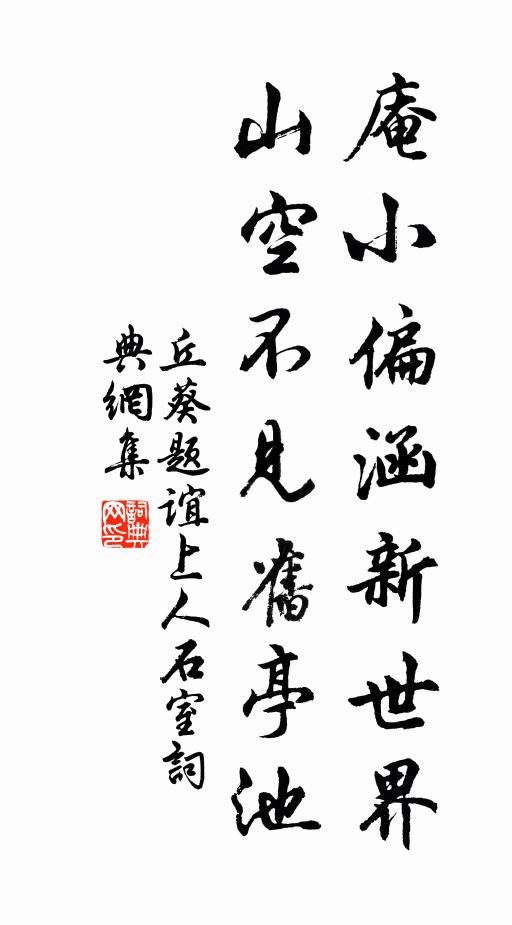 庵小偏涵新世界
山空不見舊亭池
丘葵題誼上人石室詞
典網集
詞典网印